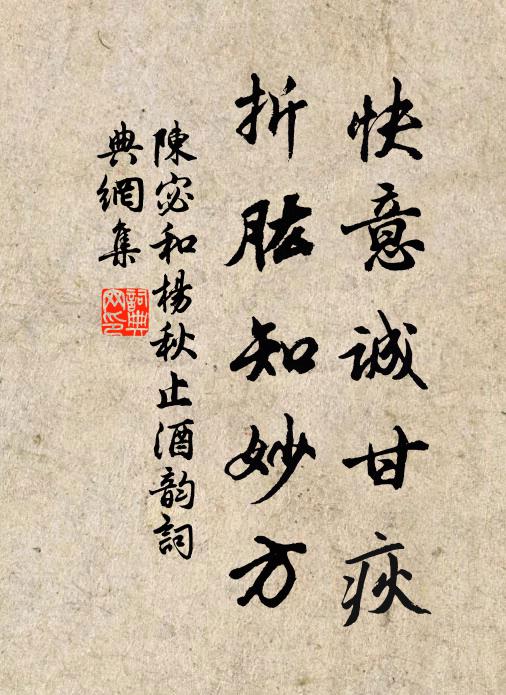 快意誠甘疢
折肱知妙方
陳宓和楊秋止酒韵詞
典網集
詞典
网印